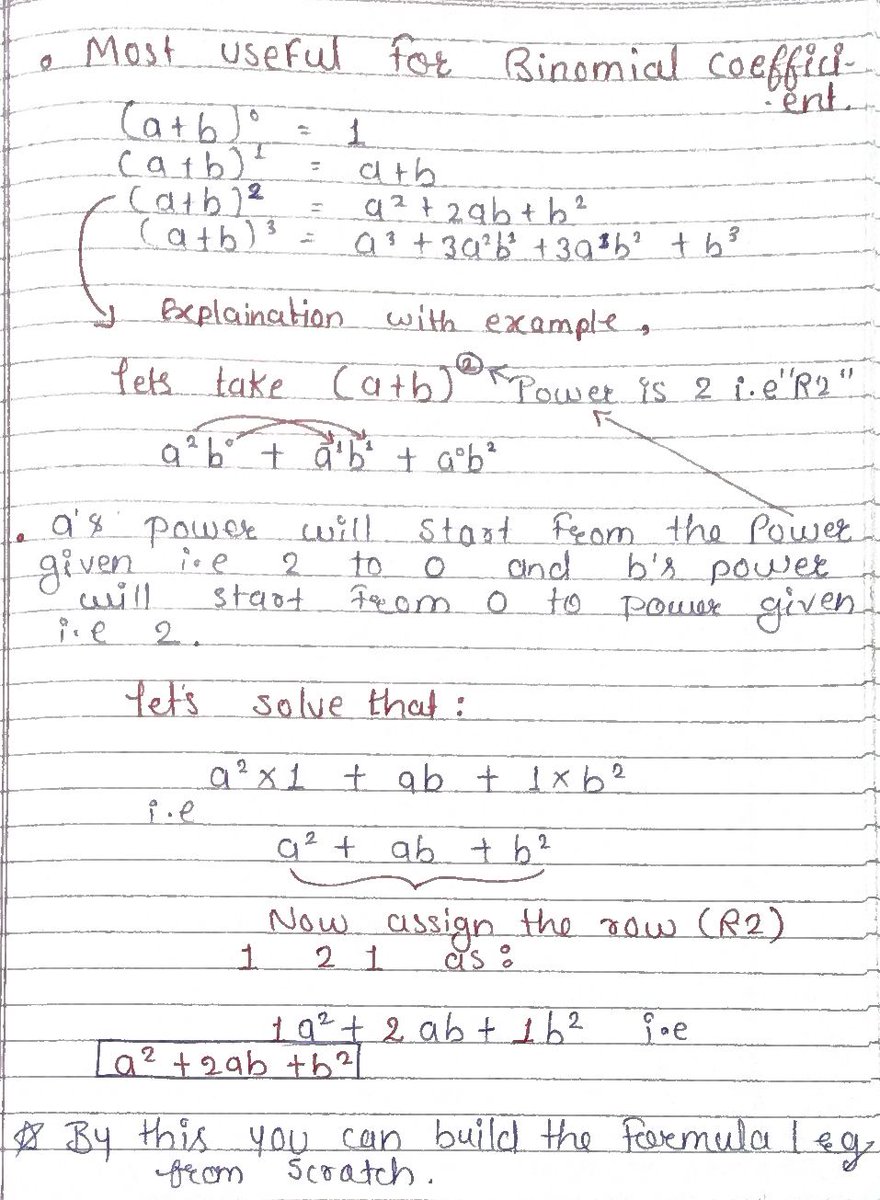 • Most useful for Binomial coeffici-
-ent.
(a+b)⁰ = 1
(a+b)¹ = a+b
(a+b)² = a² + 2ab + b²
(a+b)³ = a³ + 3a²b¹ + 3a¹b² + b³
Explaination with example,
lets take (a+b)² Power is 2 i.e "R2"
a²b⁰ + a¹b¹ + a⁰b²
• a's power will start from the Power
given i.e 2 to 0 and b's power
will start from 0 to power given
i.e 2.
let's solve that:
a² × 1 + ab + 1 × b²
i.e
a² + ab + b²
Now assign the row (R2)
1 2 1 as:
1a² + 2ab + 1b² i.e
a² + 2ab + b²
☆ By this you can build the formula / eg
from scratch.